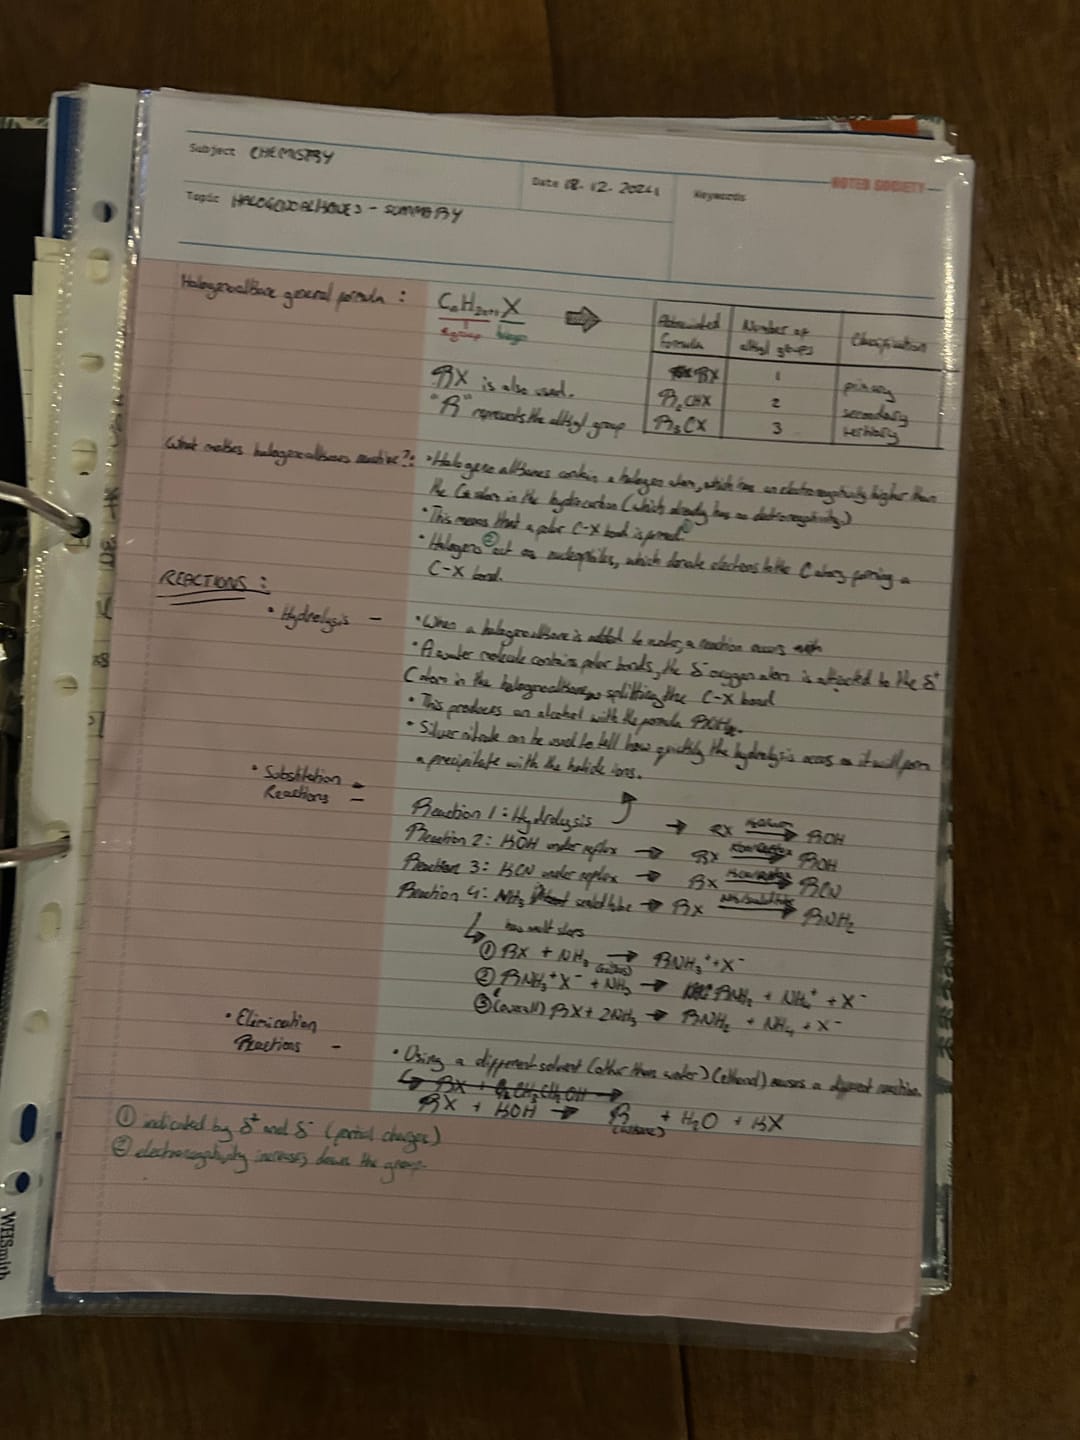 Subject CHEMISTRY
Date 08.12.2024
Keywords
NOTED SOCIETY
Topic HALOGENOALKANES - SUMMARY
Halogenoalkane general formula :
CnH2n+1X
R group halogen
RX is also used.
"R" represents the alkyl group
Abbreviated formula Number of alkyl groups Classification
RX 1 primary
R2CHX 2 secondary
R3CX 3 tertiary
What makes halogenoalkanes reactive?:
• Halogenoalkanes contain a halogen atom, which has an electronegativity higher than
the C atom in the hydrocarbon (which already has no electronegativity.)
• This means that a polar C-X bond is formed.①
• Halogens② act as nucleophiles, which donate electrons to the C atom, forming a
C-X bond.
REACTIONS :
• Hydrolysis -
• When a halogenoalkane is added to water, a reaction occurs
• A water molecule contains polar bonds, the δ- oxygen atom is attracted to the δ+
C atom in the halogenoalkane, splitting the C-X bond
• This produces an alcohol with the formula
• Silver nitrate can be used to tell how quickly the hydrolysis occurs as it will form
a precipitate with the halide ions.
• Substitution
Reactions -
Reaction 1: Hydrolysis → RX → ROH
Reaction 2: KOH under reflux → RX → ROH
Reaction 3: KCN under reflux → RX → RCN
Reaction 4: NH3 sealed tube → RX → RNH2
↳ has mult steps
① RX + NH3 → RNH3+ + X-
② RNH3+X- + NH3 → RNH2 + NH4+ + X-
③ (overall) RX + 2NH3 → RNH2 + NH4 + X-
• Elimination
Reactions -
• Using a different solvent (other than water) (ethanol) causes a different reaction.
RX + KOH → R + H2O + KX
(alkene)
① indicated by δ+ and δ- (partial charges)
② electronegativity increases down the group.
WHSmith